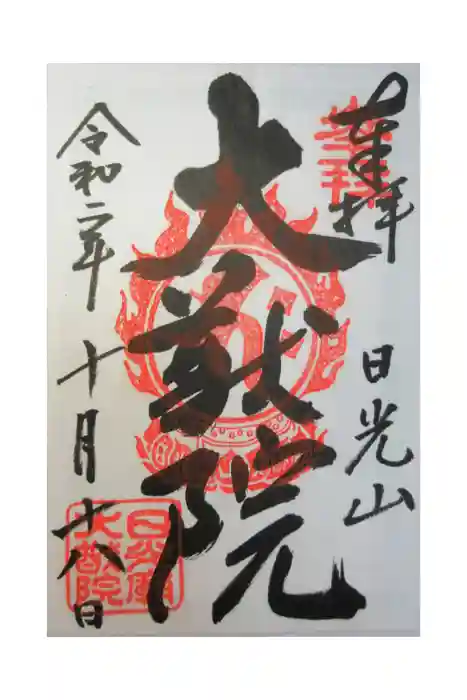 奉拝
日光山
大猷院
令和二年十月十八日
日光山
大猷院